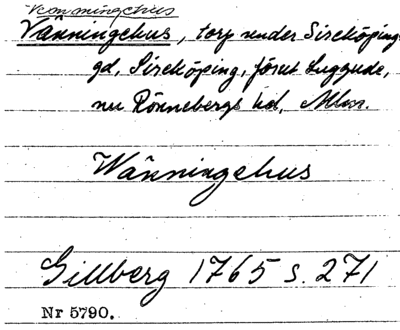 Venningehus
Vänningehus, torp under Sireköpinge
gd, Sireköping, förut Luggude,
nu Rönnebergs hd, Mlm.
Wänningehus
Gillberg 1765 s. 271
Nr 5790.